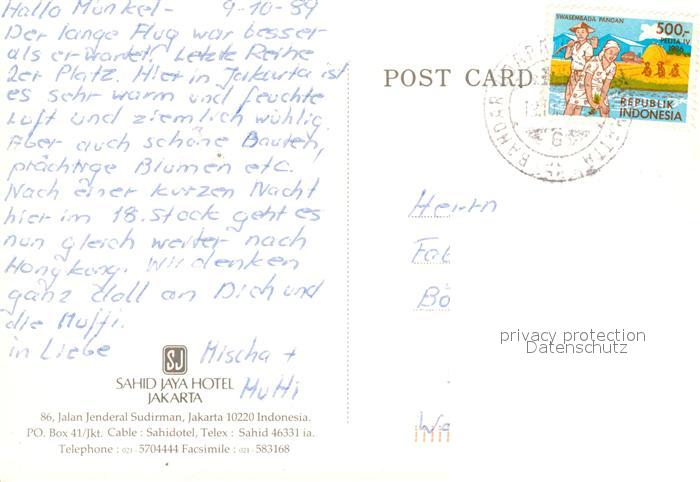 Hallo Münkel - 9-10-89
Der lange Flug war besser
als erwartet. Letzte Reihe
2er Platz. Hier in Jakarta ist
es sehr warm und feuchte
Luft und ziemlich wühlig
Aber auch schöne Bauten,
prächtige Blumen etc.
Nach einer kurzen Nacht
hier im 18. Stock geht es
nun gleich weiter nach
Hongkong. Wir denken
ganz doll an Dich und
die Muffi.
in Liebe Mischa +
Mutti
SJ
SAHID JAYA HOTEL
JAKARTA
86, Jalan Jenderal Sudirman, Jakarta 10220 Indonesia.
PO. Box 41/Jkt. Cable : Sahidotel, Telex : Sahid 46331 ia.
Telephone : 021 - 5704444 Facsimile : 021 - 583168
POST CARD
SWASEMBADA PANGAN
500,-
PELITA IV
1986
REPUBLIK
INDONESIA
BANDAR
6
Herrn
privacy protection
Datenschutz